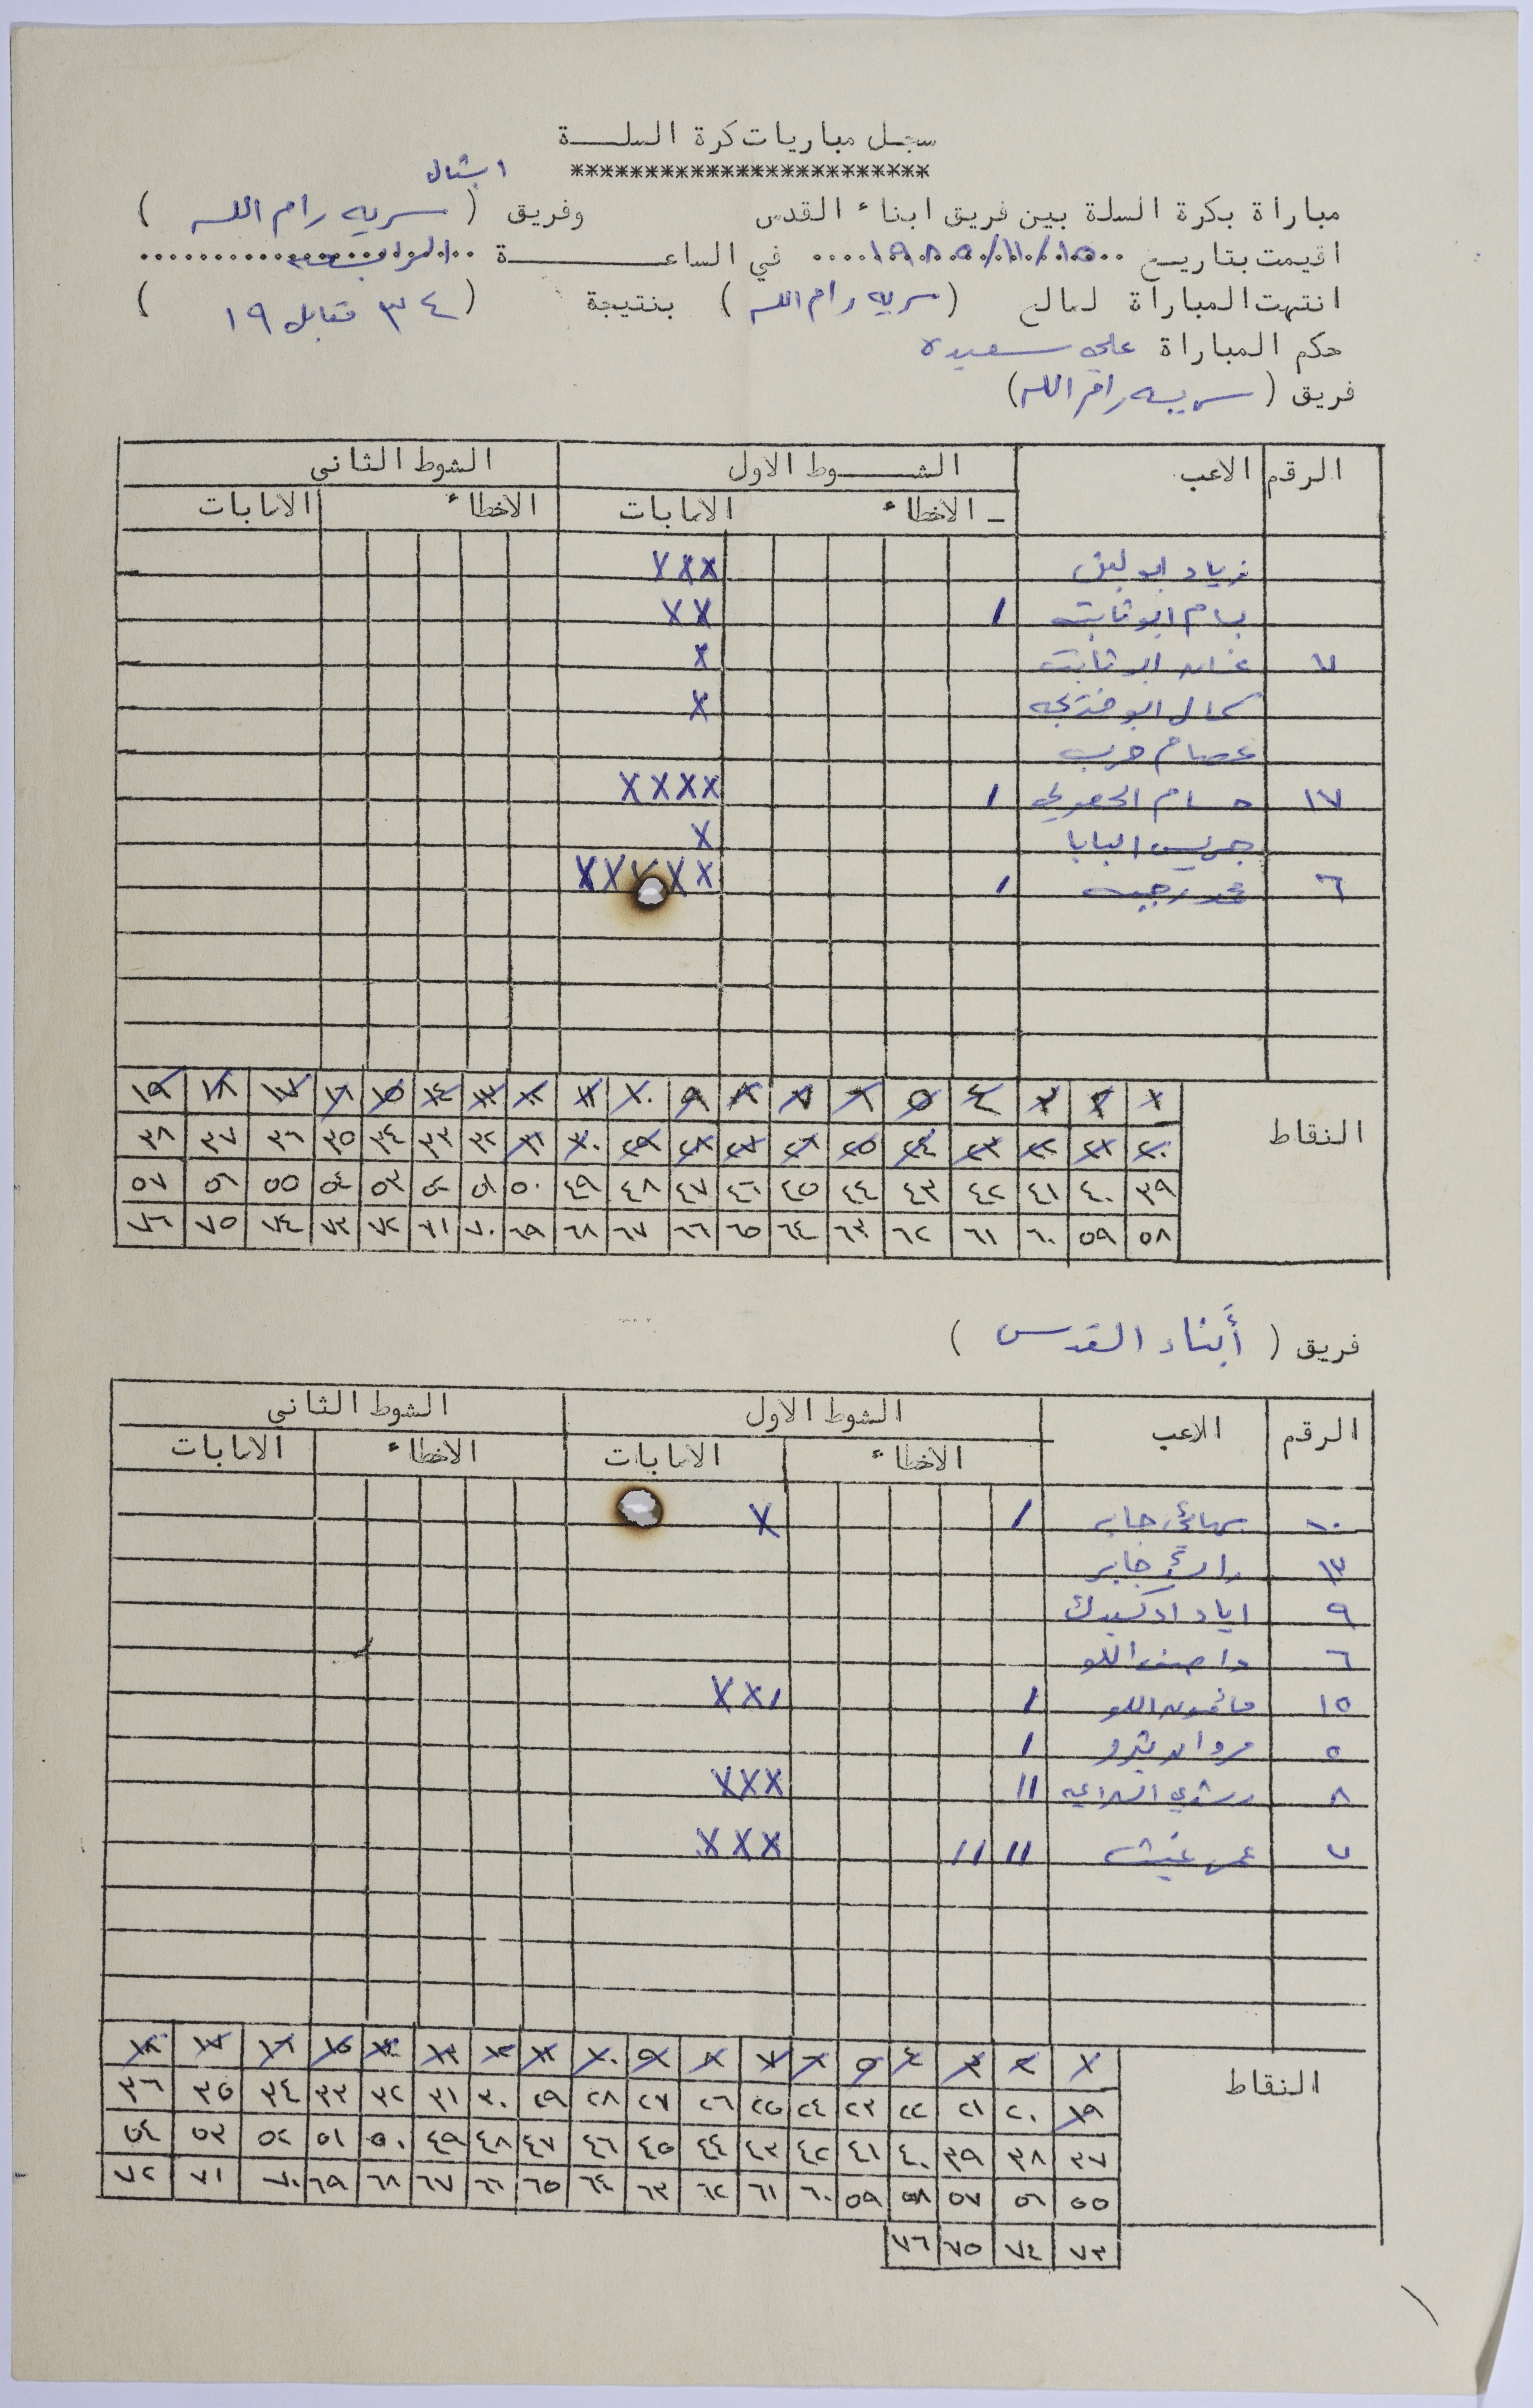 سجل مباريات كرة السلة
***********************
اشبال
مباراة بكرة السلة بين فريق ابناء القدس وفريق ( سرية رام الله )
اقيمت بتاريخ ١٩٨٥/١١/١٥ في الساعة الرابعة
انتهت المباراة لصالح ( سرية رام الله ) بنتيجة ( ٣٤ مقابل ١٩ )
حكم المباراة علي سعيده
فريق ( سرية رام الله )
الرقم الاعب الشوط الاول الشوط الثاني
الاخطاء الاصابات الاخطاء الاصابات
زياد ابو ليل XXX
بسام ابو ثابت / XX
٧ غسان ابو ثابت X
كمال ابو X
عصام حرب
١٧ حسام / XXXX
جريس البابا X
٦ محمد / XXXXX
النقاط
١ ٢ ٣ ٤ ٥ ٦ ٧ ٨ ٩ ١٠ ١١ ١٢ ١٣ ١٤ ١٥ ١٦ ١٧ ١٨ ١٩
٢٠ ٢١ ٢٢ ٢٣ ٢٤ ٢٥ ٢٦ ٢٧ ٢٨ ٢٩ ٣٠ ٣١ ٣٢ ٣٣ ٣٤ ٣٥ ٣٦ ٣٧ ٣٨
٣٩ ٤٠ ٤١ ٤٢ ٤٣ ٤٤ ٤٥ ٤٦ ٤٧ ٤٨ ٤٩ ٥٠ ٥١ ٥٢ ٥٣ ٥٤ ٥٥ ٥٦ ٥٧
٥٨ ٥٩ ٦٠ ٦١ ٦٢ ٦٣ ٦٤ ٦٥ ٦٦ ٦٧ ٦٨ ٦٩ ٧٠ ٧١ ٧٢ ٧٣ ٧٤ ٧٥ ٧٦
فريق ( أبناء القدس )
الرقم الاعب الشوط الاول الشوط الثاني
الاخطاء الاصابات الاخطاء الاصابات
١٠ جابر / X
١٣ جابر
٩ اياد
٦ واصف اللو
١٥ مأمون اللو / /XX
٥ مروان بترو /
٨ رشدي // XXX
٧ عمر غيث // // XXX
النقاط
١ ٢ ٣ ٤ ٥ ٦ ٧ ٨ ٩ ١٠ ١١ ١٢ ١٣ ١٤ ١٥ ١٦ ١٧ ١٨
١٩ ٢٠ ٢١ ٢٢ ٢٣ ٢٤ ٢٥ ٢٦ ٢٧ ٢٨ ٢٩ ٣٠ ٣١ ٣٢ ٣٣ ٣٤ ٣٥ ٣٦
٣٧ ٣٨ ٣٩ ٤٠ ٤١ ٤٢ ٤٣ ٤٤ ٤٥ ٤٦ ٤٧ ٤٨ ٤٩ ٥٠ ٥١ ٥٢ ٥٣ ٥٤
٥٥ ٥٦ ٥٧ ٥٨ ٥٩ ٦٠ ٦١ ٦٢ ٦٣ ٦٤ ٦٥ ٦٦ ٦٧ ٦٨ ٦٩ ٧٠ ٧١ ٧٢
٧٣ ٧٤ ٧٥ ٧٦